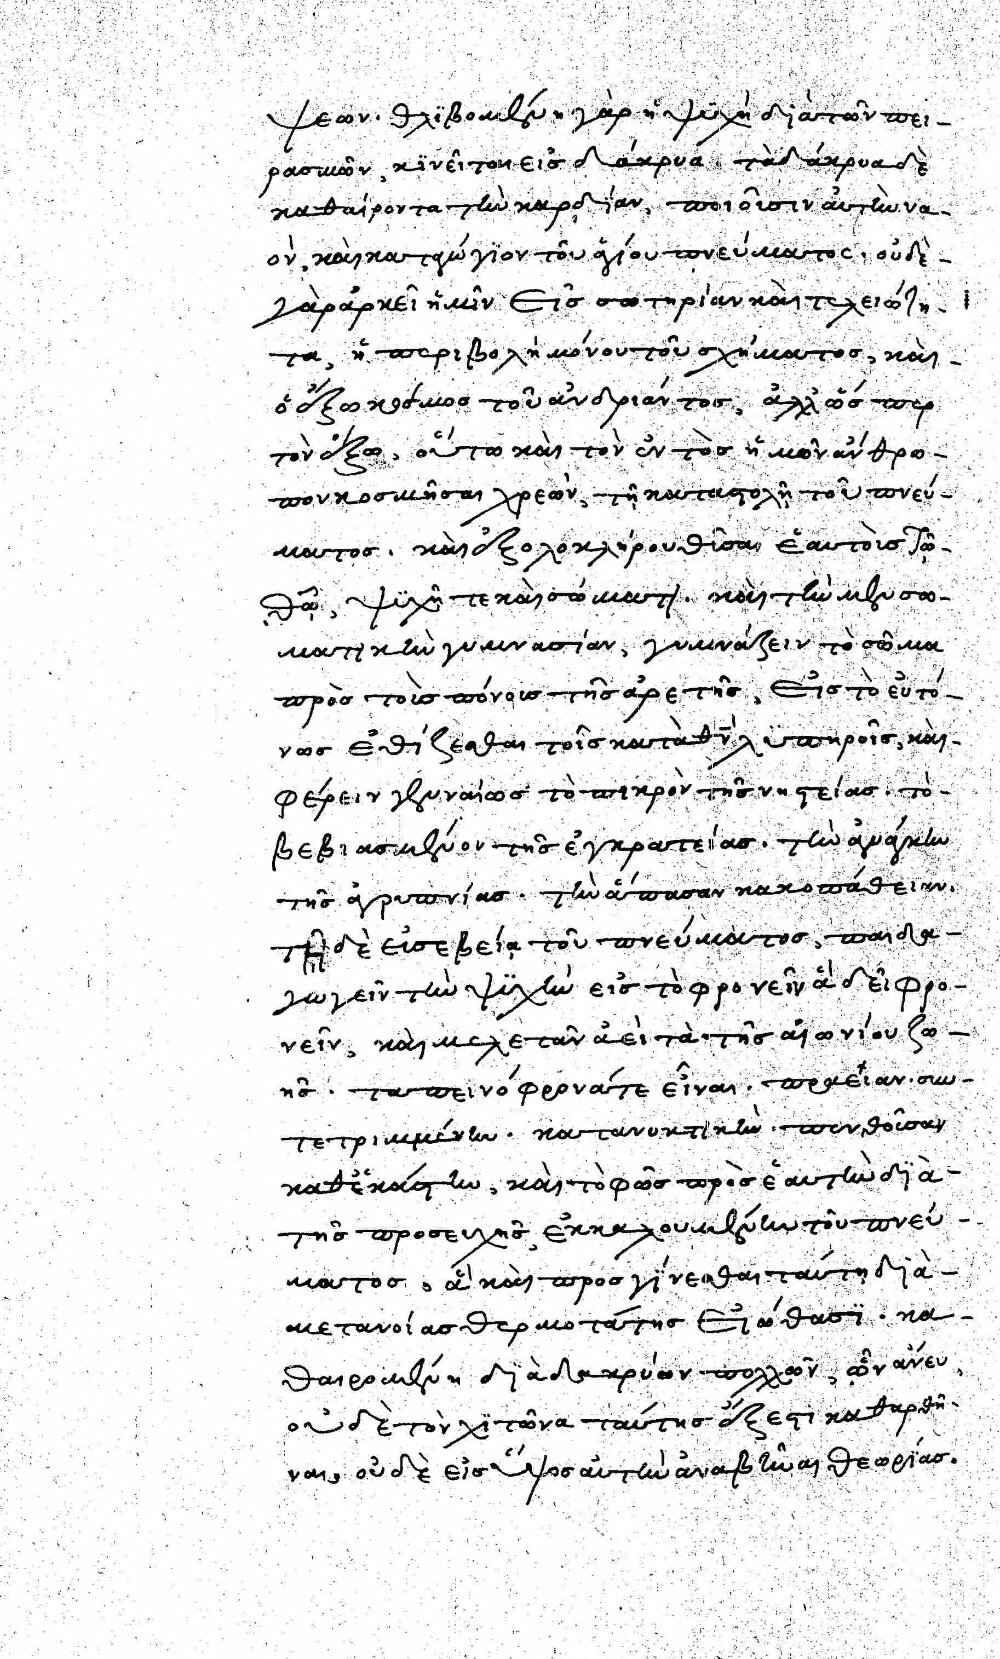 ψεων. θλϊβομένη γὰρ ἡ ψϋχὴ διὰ τῶν πει-
ρασμῶν, κϊνεῖται εἰς δάκρυα. τὰ δάκρυα δὲ
καθαίροντα τὴν καρδίαν, ποιοῦσιν αὐτὴν να-
ὸν, καὶ καταγώγϊον τοῦ ἁγίου πνεύματος. οὐδὲ-
γὰρ ἀρκεῖ ἡμῖν εἰς σωτηρίαν καὶ τελειότη-
τα, ἡ περιβολὴ μόνου τοῦ σχήματος, καὶ-
ὁ ἔξω κόσμος τοῦ ἀνδριάντος, ἀλλ' ὥσπερ
τὸν ἔξω, οὕτω καὶ τὸν ἐντὸς ἡμῶν ἄνθρω-
πον κοσμῆσαι χρεὼν, τῇ καταστολῇ τοῦ πνεύ-
ματος. καὶ ἐξολοκλήρου θῦσαι ἑαυτοὺς τῷ-
θῷ, ψϋχῇ τε καὶ σώματι. καὶ τὴν μὲν σω-
ματικὴν γυμνασίαν, γυμνάζειν τὸ σῶμα
πρὸς τοὺς πόνους τῆς ἀρετῆς, εἰς τὸ εὐτό-
νως ἐθίζεσθαι τοῖς κατὰ θν λϋπηροῖς, καὶ-
φέρειν γενναίως τὸ πικρὸν τῆς νηστείας. τὸ-
βεβιασμένον τῆς ἐγκρατείας. τὴν ἀνάγκην
τῆς ἀγρυπνίας. τὴν ἅπασαν κακοπάθειαν.
τῇ δὲ εὐσεβείᾳ τοῦ πνεύματος, παιδα-
γωγεῖν τὴν ψϋχὴν εἰς τὸ φρονεῖν ἃ δεῖ φρο-
νεῖν, καὶ μελετᾶν ἀεὶ τὰ τῆς αἰωνίου ζω-
ῆς. ταπεινόφρονά τε εἶναι. πραεῖαν. συν-
τετριμμένην. κατανυκτικὴν. πενθοῦσαν
καθ' ἑκάστην, καὶ τὸ φῶς πρὸς ἑαυτὴν διὰ-
τῆς προσευχῆς ἐκκαλουμένην τοῦ πνεύ-
ματος. ἃ καὶ προσγίνεσθαι ταύτῃ διὰ-
μετανοίας θερμοτάτης εἰώθασϊ. κα-
θαιρομένη διὰ δακρύων πολλῶν, ὧν ἄνευ,
οὐδὲ τὸν χϊτῶνα ταύτης ἔξεστι καθαρθῆ-
ναι, οὐδὲ εἰς ὕψος αὐτὴν ἀναβῆναι θεωρίας.